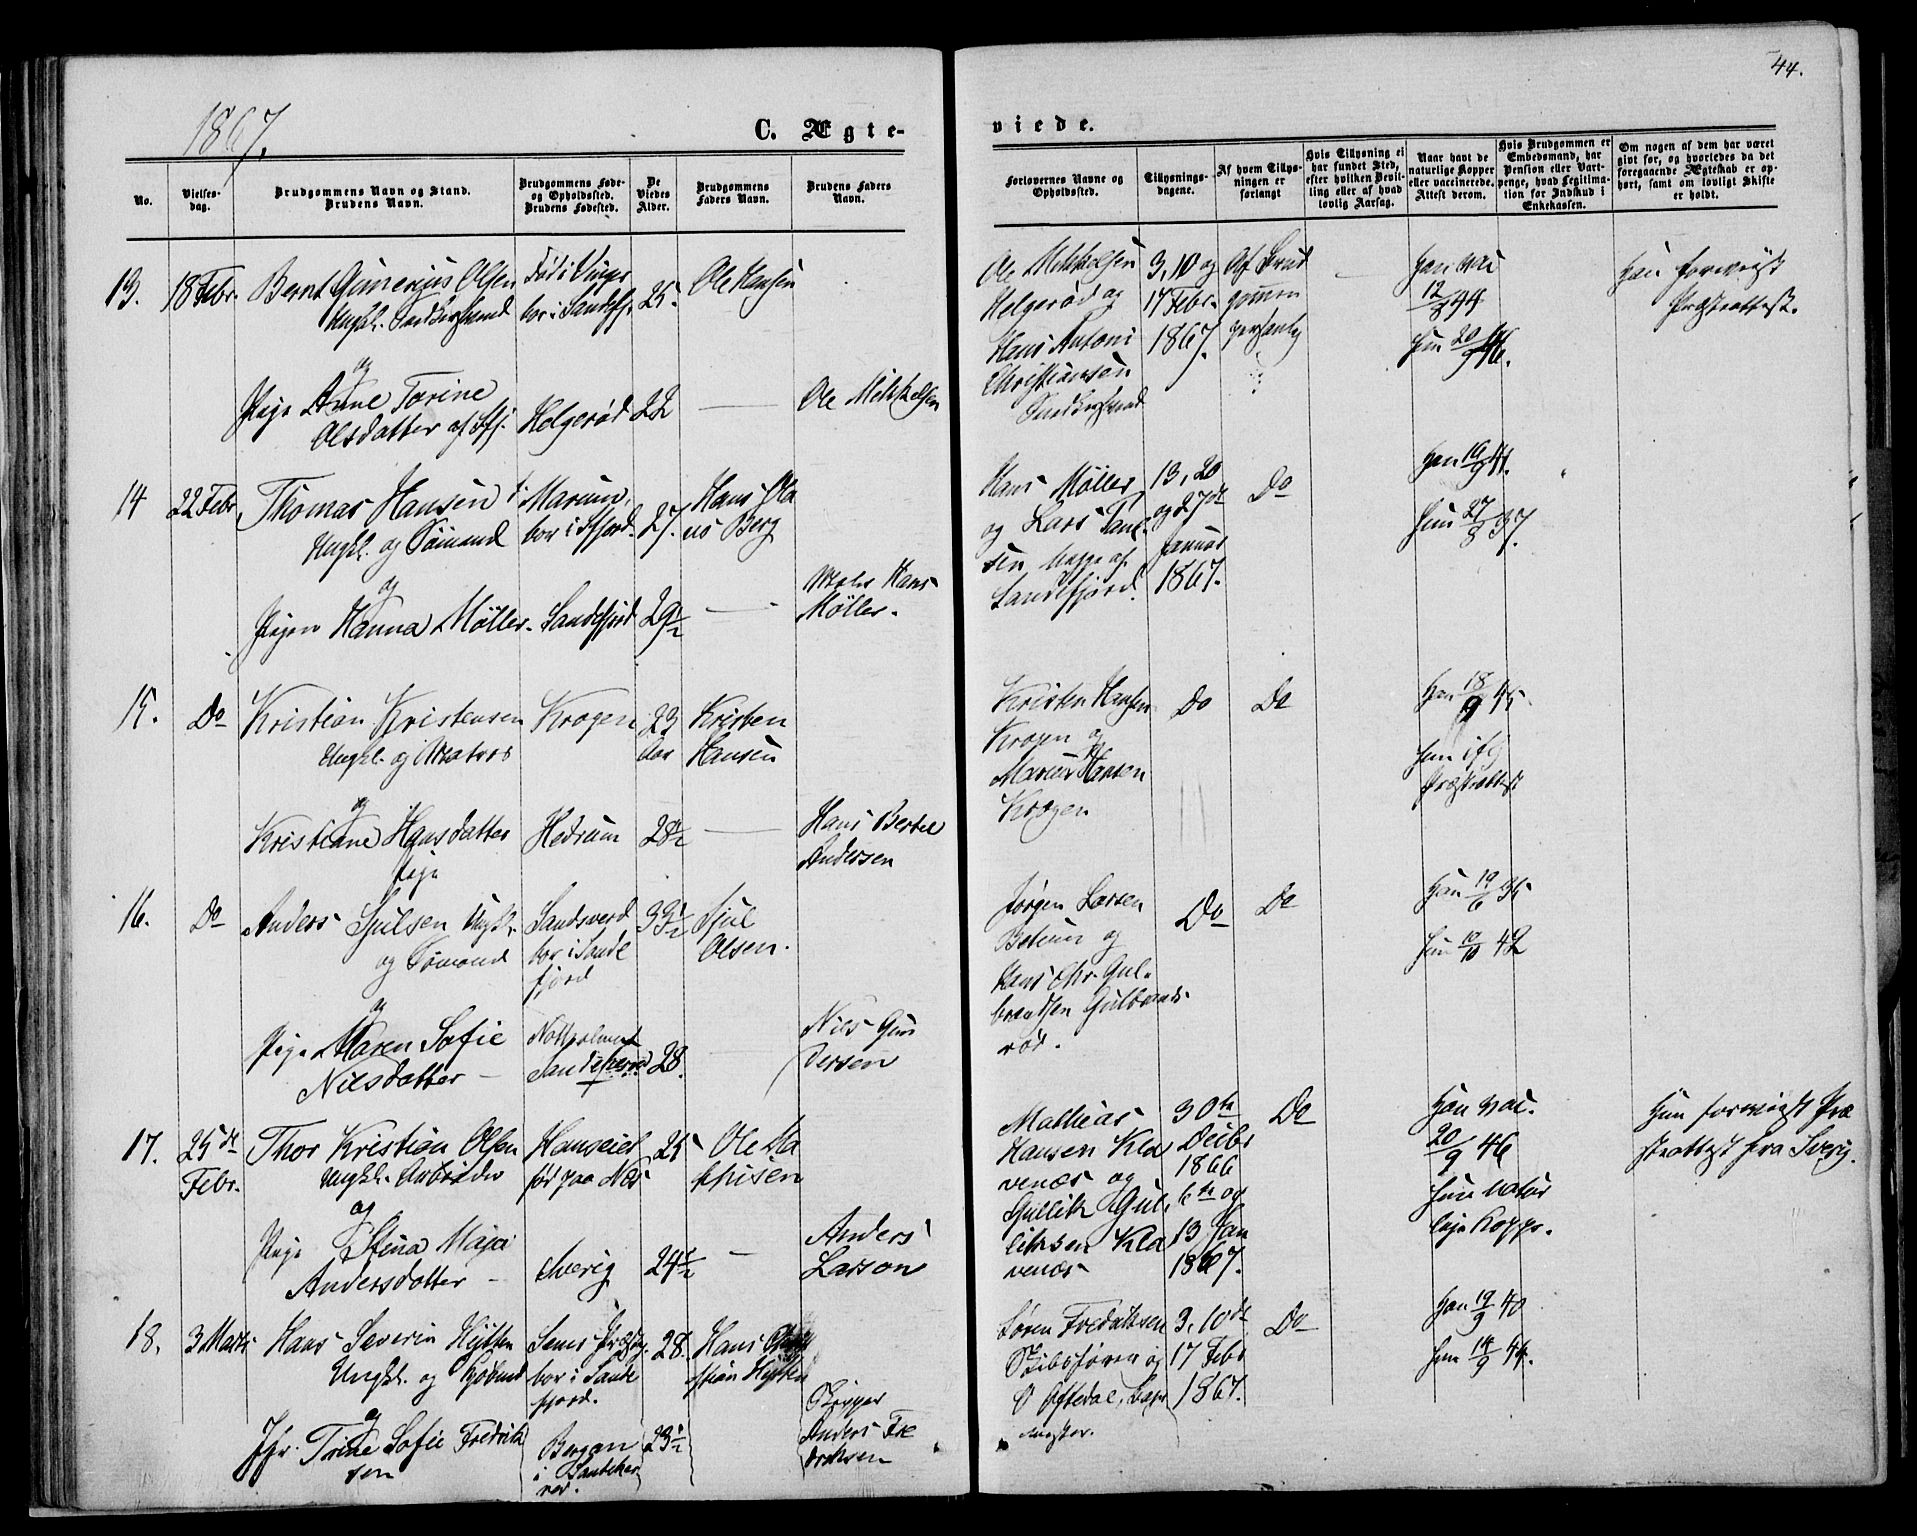 44.
1867.
C. Ægte-
viede.
No.
Vielses-
dag.
Brudgommens Navn og Stand.
Brudens Navn.
Brudgommens Føde-
og Opholdssted.
Brudens Fødested.
De
Viedes
Alder.
Brudgommens
Faders Navn.
Brudens Faders
Navn.
Forlovernes Navne og
Opholdssted.
Tillysnings-
dagene.
Af hvem Tillys-
ningen er
forlangt
Hvis Tillysning ei
har fundet Sted,
efter hvilken Bevil-
ling eller af hvad
lovlig Aarsag.
Naar havt de
naturlige Kopper
eller vaccinerede.
Attest derom.
Hvis Brudgommen er
Embedsmand, har
Pension eller Vart-
penge, hvad Legitima-
tion for Indskud i
Enkekassen.
Om nogen af dem har været
givt før, og hvorledes da det
foregaaende Ægteskab er op-
hørt, samt om lovligt Skifte
er holdt.
13.
18 Febr.
Bernt Gunerius Olsen
Ungkl.
og
Pige Anne Torine
Olsdatter af Sfj.
Født i
bor i Sandefj.
Helgerød
25.
22
Ole Hansen
Ole Mikkelsen
Ole Mikkelsen
Helgerød og
Hans Antoni
Christiansen
3, 10 og
17 Febr.
1867.
Af Brud
gommen
personlig
Han vac
12/8 44
Hun 20/9 46.
Hun foreviist
Præsteattest.
14
22 Febr
Thomas Hansen
Ungkl. og Sømand
og
Pigen Hanna Møller.
bor i Sfjord.
Sandefjord
27.
29½
Hans Ola
us Berg
Hans
Møller.
Hans Møller
og Lars Paul-
sen begge af
Sandefjord.
13, 20
og 27de
Januar
1867.
Do
Han 19/9 41.
Hun 27/8 37.
15.
Do
Kristian Kristensen
Ungkl. og Matros
og
Kristiane Hansdatter
Pige
Krogen
Hedrum
23
Aar
28½
Kristen
Hansen
Hans Bertel
Andersen
Kristen Hansen
Krogen og
Marius Hansen
Krogen
Do
Do
Han 18/9 45
Hun ifg
Præsteattest
16.
Do
Anders Sjulsen Ungkl.
og Sømand
og
Pige Maren Sofie
Nilsdatter
Sandsverd
bor i Sande
fjord
Natholmen
Sandeherred
33½
28.
Sjul
Olsen.
Nils Gun
dersen
Jørgen Larsen
og
Hans Chr. Gul-
brandsen Gulbrands
rød.
Do
Do
Han 19/6 35
Hun 10/10 42
17.
25de
Febr.
Thor Kristian Olsen
Ungkl. Arbeider
og
Pige Stina Maja
Andersdatter
fød paa Nes
Sverig
25
24½
Ole Ma
thisen
Anders
Larson
Mathias
Hansen Kla
venæs og
Gullik Gul
liksen Kla
venæs
30te
Decbr
1866
6te og
13 Jan
1867.
Do
Han vac.
20/9 46
Hun natur
lige Kopper.
Hun foreviist Præ
steattest fra Sverig.
18.
3 Marts
Hans Severin Hytten
Ungkl. og
og
Jfr. Trine Sofie Fredrik
sen
Sems Præstegj.
bor i Sande
fjord.
Bergan
i Sandeher
red.
28.
23½
Hans Chri
stian Hytten
Skipper
Anders Fre
driksen
Søren Fredriksen
Skibsfører og
O Oftedal, Bager
mester.
3, 10de
17 Febr
1867.
Do
Han 19/9 40
Hun 14/9 44.